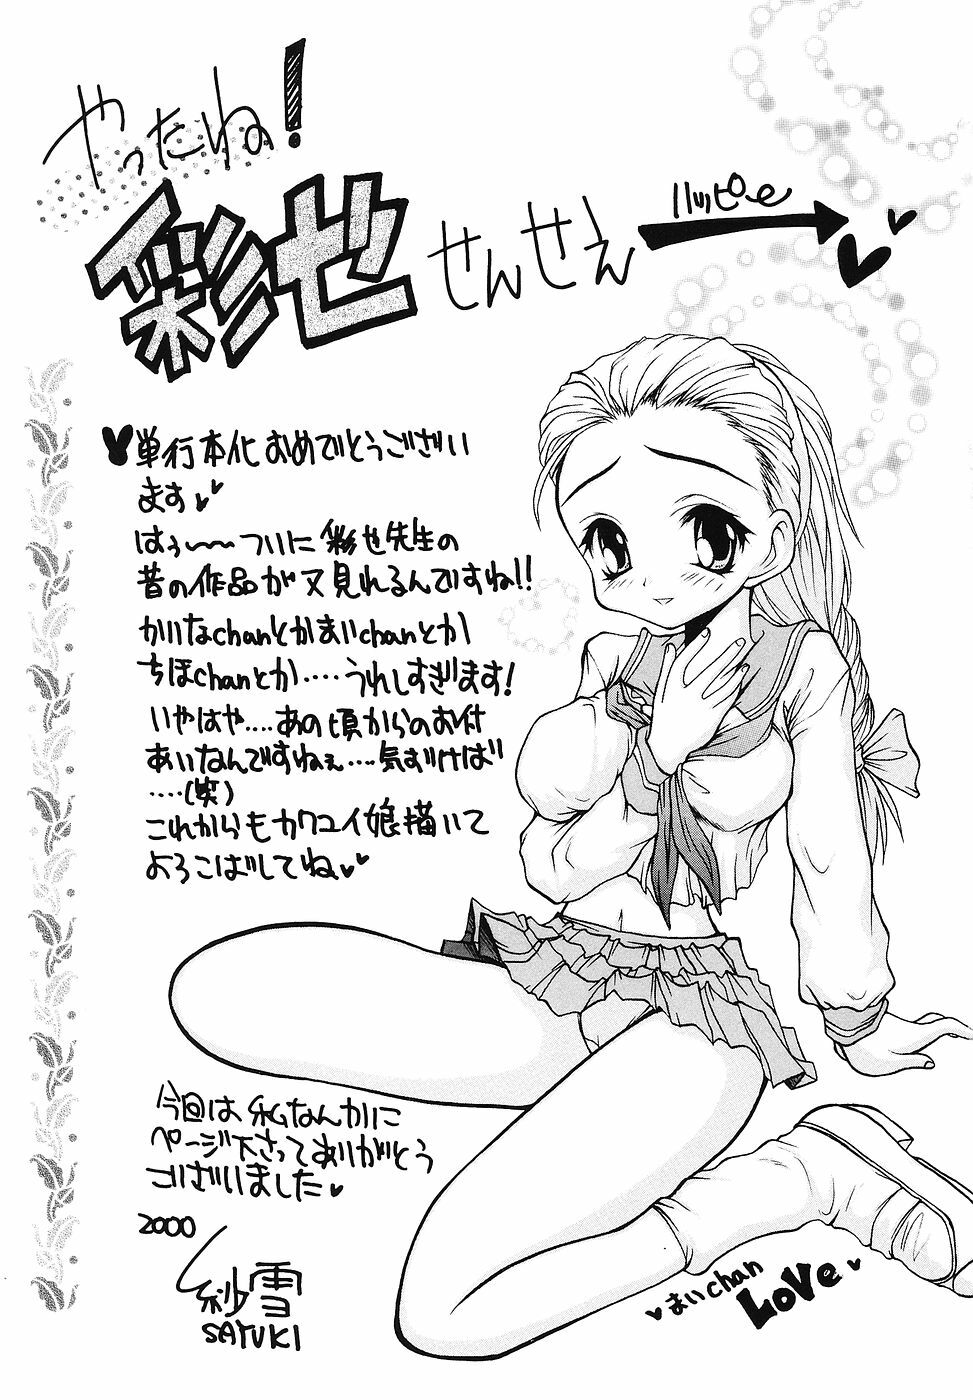 やったね!
彩せ
せんせえ
ハッピー
単行本化おめでとうござい
ます
はぅ〜〜ついに彩せ先生の
昔の作品が又見れるんですね!!
かいなchanとかまいchanとか
ちほchanとか....うれしすぎます!
いやはや....あの頃からのお付
あいなんですねぇ....気づけば
....(笑)
これからもカワユイ娘描いて
よろこばしてね
今回は私なんかに
ページ下さってありがとう
ございました
2000
紗雪
SAYUKI
まいchan
LoVe